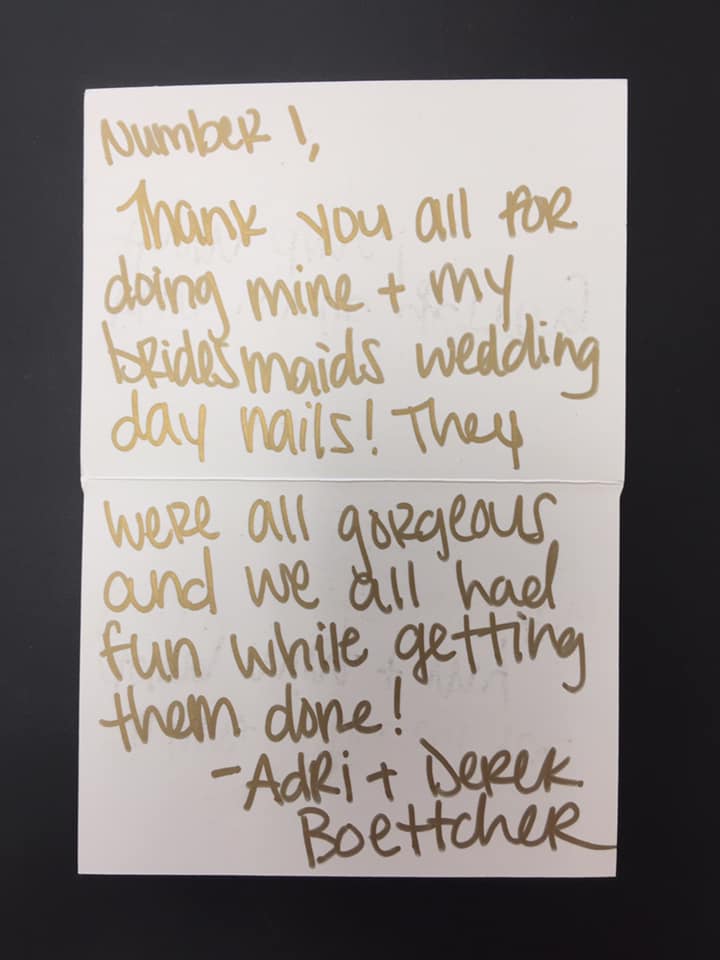 Number 1,
Thank you all for
doing mine + my
bridesmaids wedding
day nails! They
were all gorgeous
and we all had
fun while getting
them done!
- Adri + Derek
Boettcher